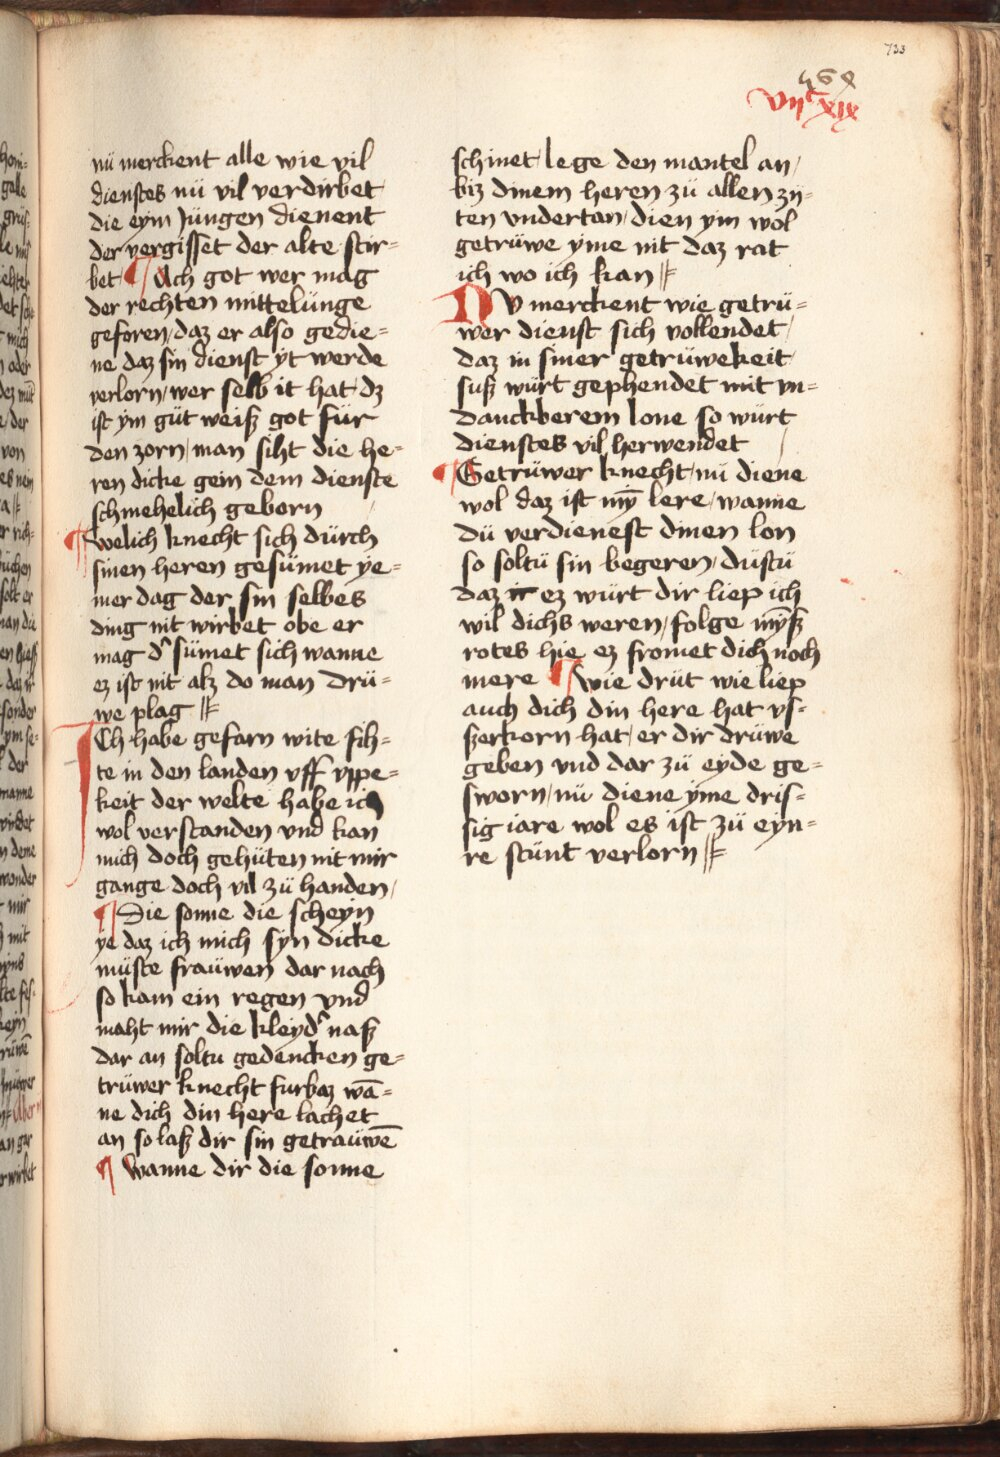 733
469
vijc xix
nü merckent alle wie vil
dienstes nü vil verdirbet
die eym Jüngen dienent
der vergisset der alte stir=
bet ¶ Ach got wer mag
der rechten mittelünge
geforen/daz er also gedie=
ne daz sin dienst yt werde
verlorn/wer selb it hat dz
ist ym güt weiß got für
den zorn/man siht die he=
ren dicke gein dem dienste
schmehelich geborn
¶ welich knecht sich dürch
sinen heren gesümet ye=
mer dag der sin selbes
ding nit wirbet obe er
mag d' sümet sich wanne
ez ist nit alz do man drü=
we plag
ICh habe gefarn wite sih=
te in den landen vff vppe=
keit der welte habe ich
wol verstanden vnd kan
mich doch gehüten nit mir
gange doch vil zü handen/
¶ Die sonne die scheyn
ye daz ich mich syn dicke
müste fraüwen dar nach
so kam ein regen vnd
maht mir die kleyd' naß
dar an soltu gedencken ge=
trüwer knecht furbaz wā=
ne dich din here lachet
an so laß dir sin getraüwē
¶ wanne dir die sonne
schinet lege den mantel an/
biz dinem heren zü allen zy=
ten vndertan/dien ym wol
getrüwe yme nit daz rat
ich wo ich kan
NV merckent wie getrü=
wer dienst sich vollendet/
daz in siner getrüwekeit
suß würt gephendet mit vn=
danckberem lone so würt
dienstes vil herwendet
¶ Getrüwer knecht/nü diene
wol daz ist mȳ lere/wanne
dü verdienest dinen lon
so soltü sin begeren/düstü
daz ez würt dir liep ich
wil dichs weren/folge mȳß
rotes hie ez fromet dich noch
mere ¶ wie drüt wie liep
auch dich din here hat vs=
ßerkorn hat er dir drüwe
geben vnd dar zü eyde ge=
sworn/nü diene yme dris=
sig iare wol es ist zü eyn=
re stünt verlorn